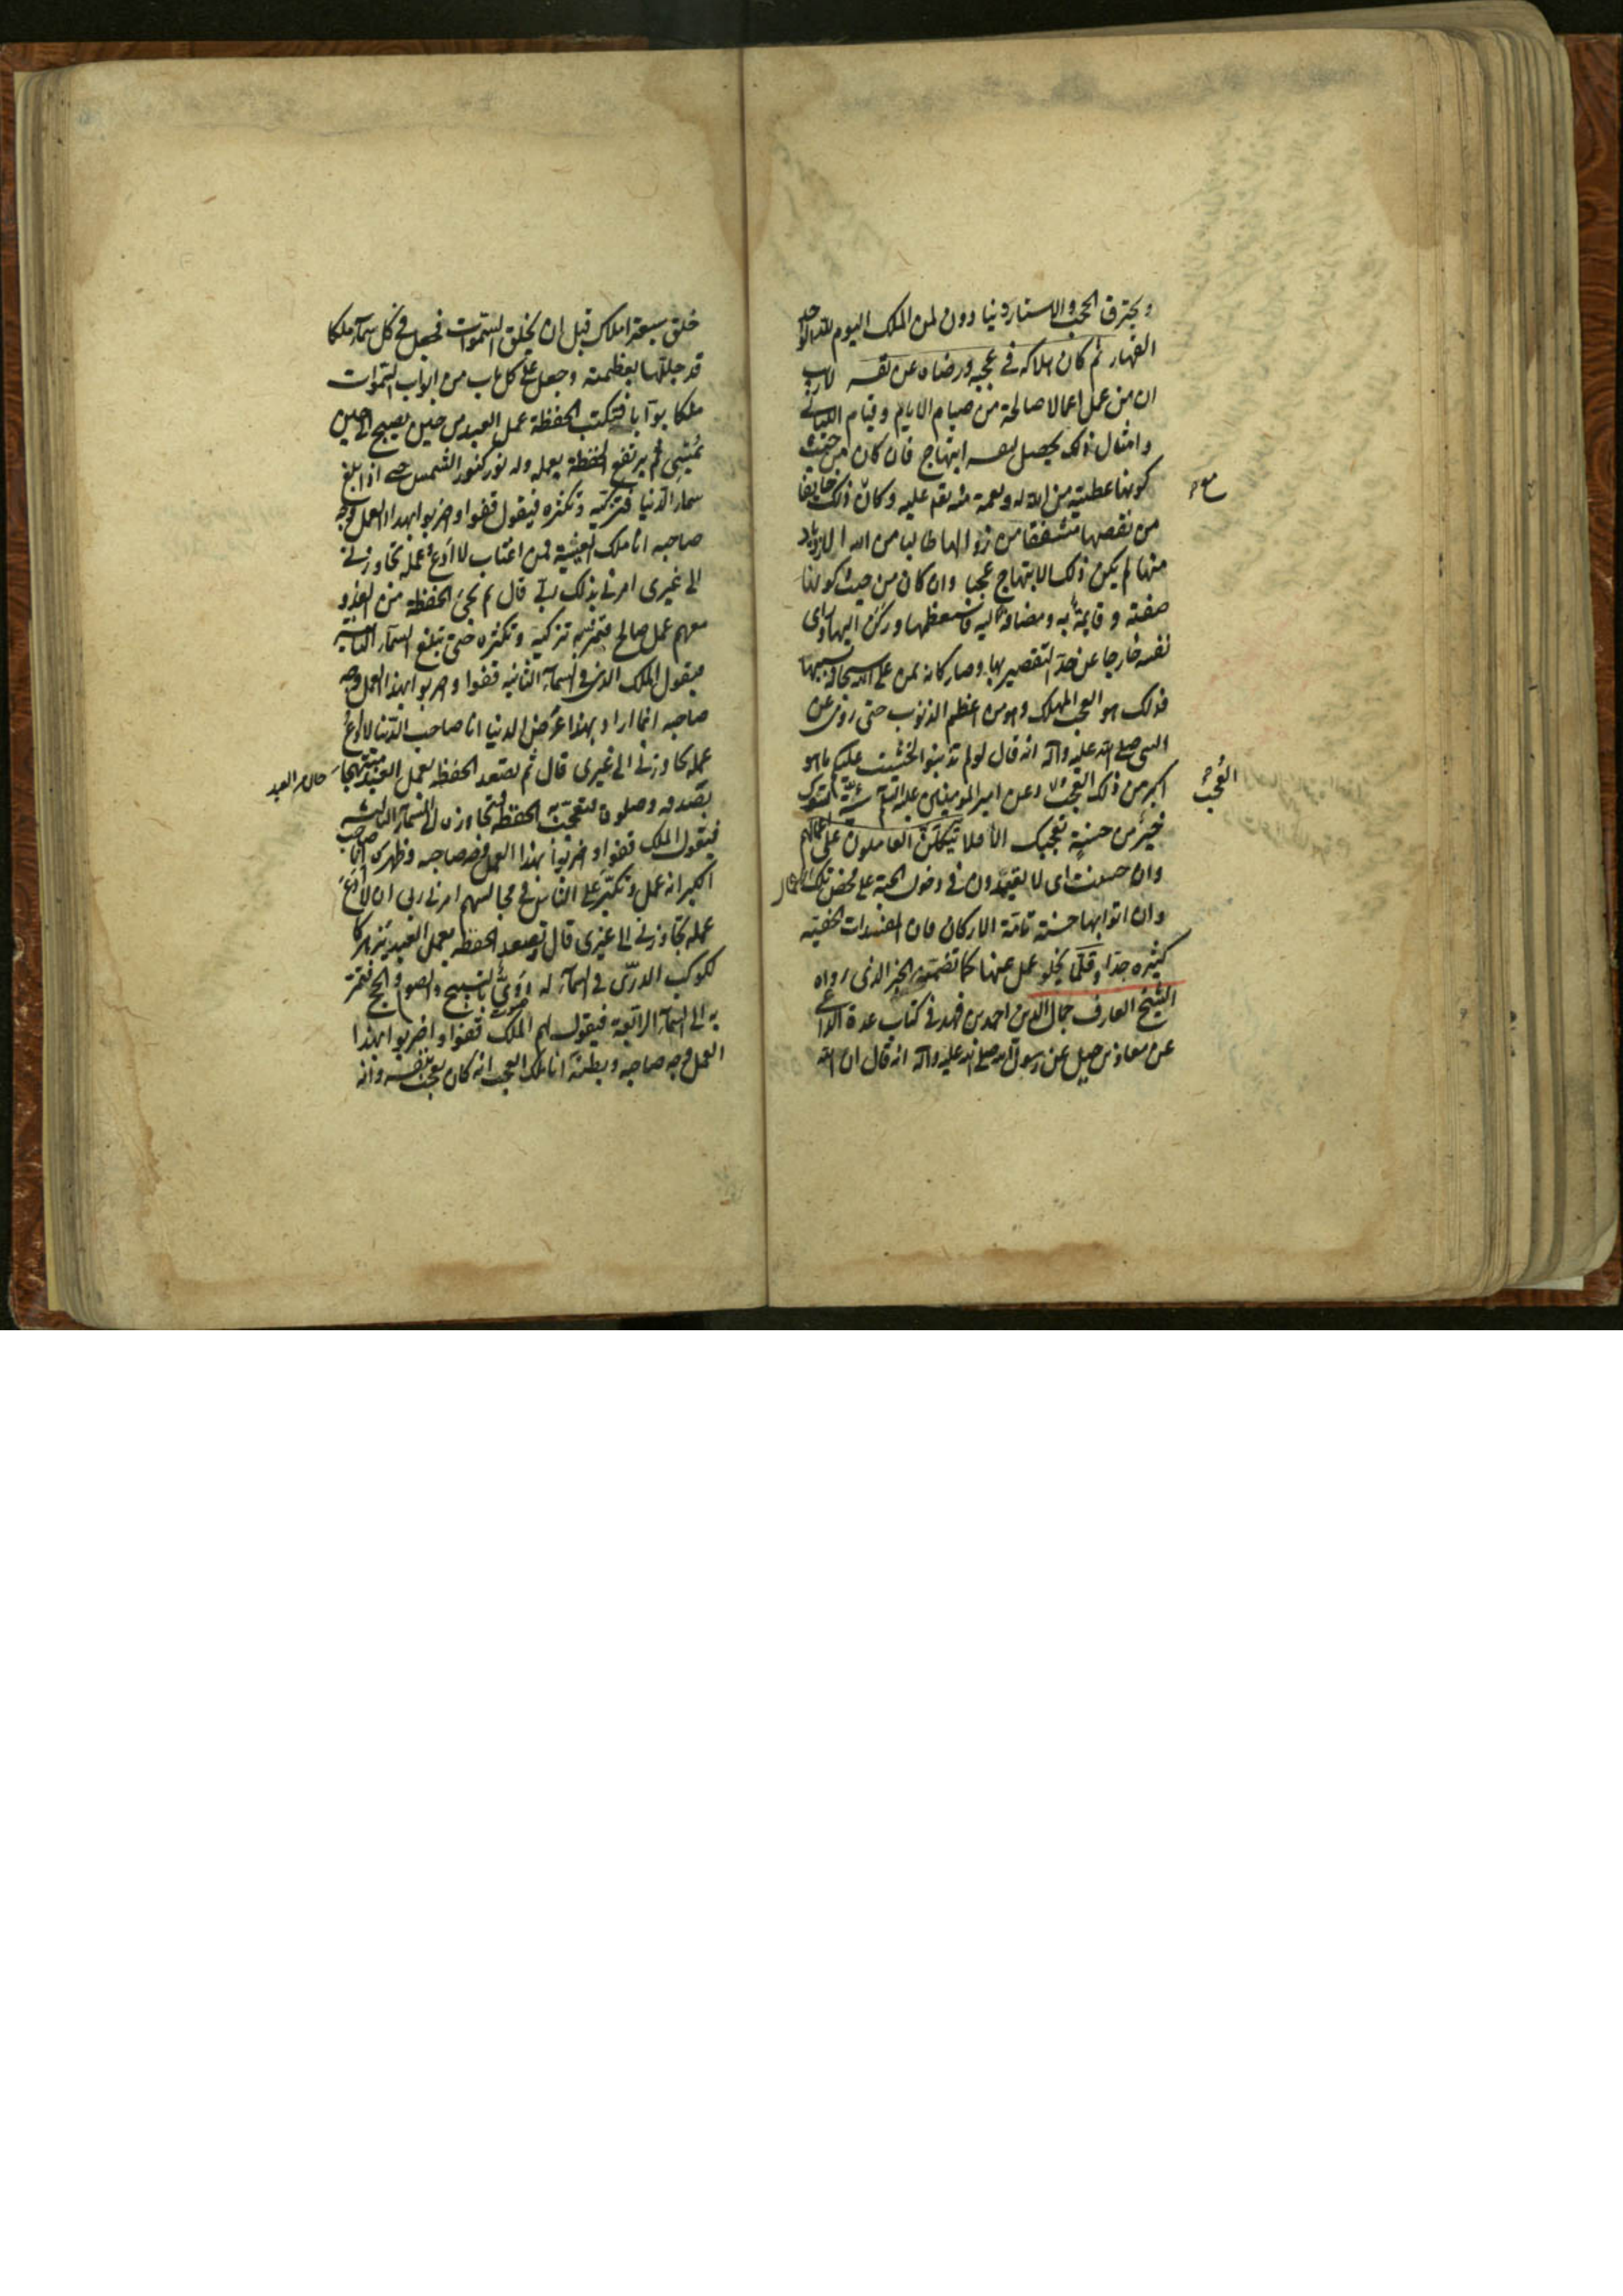 ويخترق الحجب والاستار دنيا دون لمن الملك اليوم لله الواحد
القهار ثم كان هلاكه في عجبه ورضاه عن نفسه لا ريب
ان من عمل اعمالا صالحة من صيام الايام وقيام الليالي
وامثال ذلك يحصل لنفسه ابتهاج فان كان من حيث
كونها عطية من الله له ونعمة منه تعم عليه وكان ذلك خايفا
من نقصها مشفقا من زوالها طالبا من الله الازدياد
منها لم يكن ذلك الابتهاج عجبا وان كان من حيث كونها
صفته وقايمة به ومضافة اليه فاستعظمها وركن اليها وراى
نفسه خارجا عن حد التقصير بها وصار كانه يمن على الله سبحانه بسببها
فذلك هو العجب المهلك وهو من اعظم الذنوب حتى روى عن
النبي صلى الله عليه وآله انه قال لو لم تذنبوا لخشيت عليكم ما هو
اكبر من ذلك العجب وعن امير المومنين عليه السلام سيئة تسوءك
خير من حسنة تعجبك الا فلا يتكلن العاملون على اعمالهم
وان حسنت اى لا يعتمدون في دخول الجنة على محض تلك الاعمال
وان اتوا بها حسنة تامة الاركان فان المفسدات الخفية
كثيره جدا وقلما يخلو عمل عنها كما تضمنه الخبر الذى رواه
الشيخ العارف جمال الدين احمد بن فهد في كتاب عدة الداعى
عن معاذ بن جبل عن رسول الله صلى الله عليه وآله انه قال ان الله
العجب
خلق سبعة املاك قبل ان يخلق السموات فجعل في كل سماء ملكا
قد جللها بعظمته وجعل على كل باب من ابواب السموات
ملكا بوابا فتكتب الحفظة عمل العبد من حين يصبح الى حين
يمسى ثم يرتفع الحفظة بعمله وله نور كنور الشمس حتى اذا بلغ
سماء الدنيا فتزكيه وتكثره فيقول قفوا واضربوا بهذا العمل وجه
صاحبه انا ملك الغيبة فمن اغتاب لا ادع عمله تجاوزنى
الى غيرى امرنى بذلك ربى قال ثم تجئ الحفظة من الغد و
معهم عمل صالح فتمر به تزكيه وتكثره حتى تبلغ السماء الثانية
فيقول الملك الذى في السماء الثانيه قفوا واضربوا بهذا العمل وجه
صاحبه انما اراد بهذا عرض الدنيا انا صاحب الدنيا لا ادع
عمله تجاوزنى الى غيرى قال ثم تصعد الحفظه بعمل العبد مبتهجا
بصدقه وصلوة فتعجب به الحفظه فتجاوزه الى السماء الثالثه
فيقول الملك قفوا واضربوا بهذا العمل وجه صاحبه وظهره انا صاحب
الكبر انه عمل وتكبر على الناس في مجالسهم امرنى ربى ان لا ادع
عمله تجاوزنى الى غيرى قال وتصعد الحفظه بعمل العبد يزهر كا
لكوكب الدرى في السماء له دوى بالتسبيح والصوم والحج فتمر
به الى السماء الرابعة فيقول لهم الملك قفوا واضربوا بهذا
العمل وجه صاحبه وبطنه انا ملك العجب انه كان يعجب بنفسه وانه